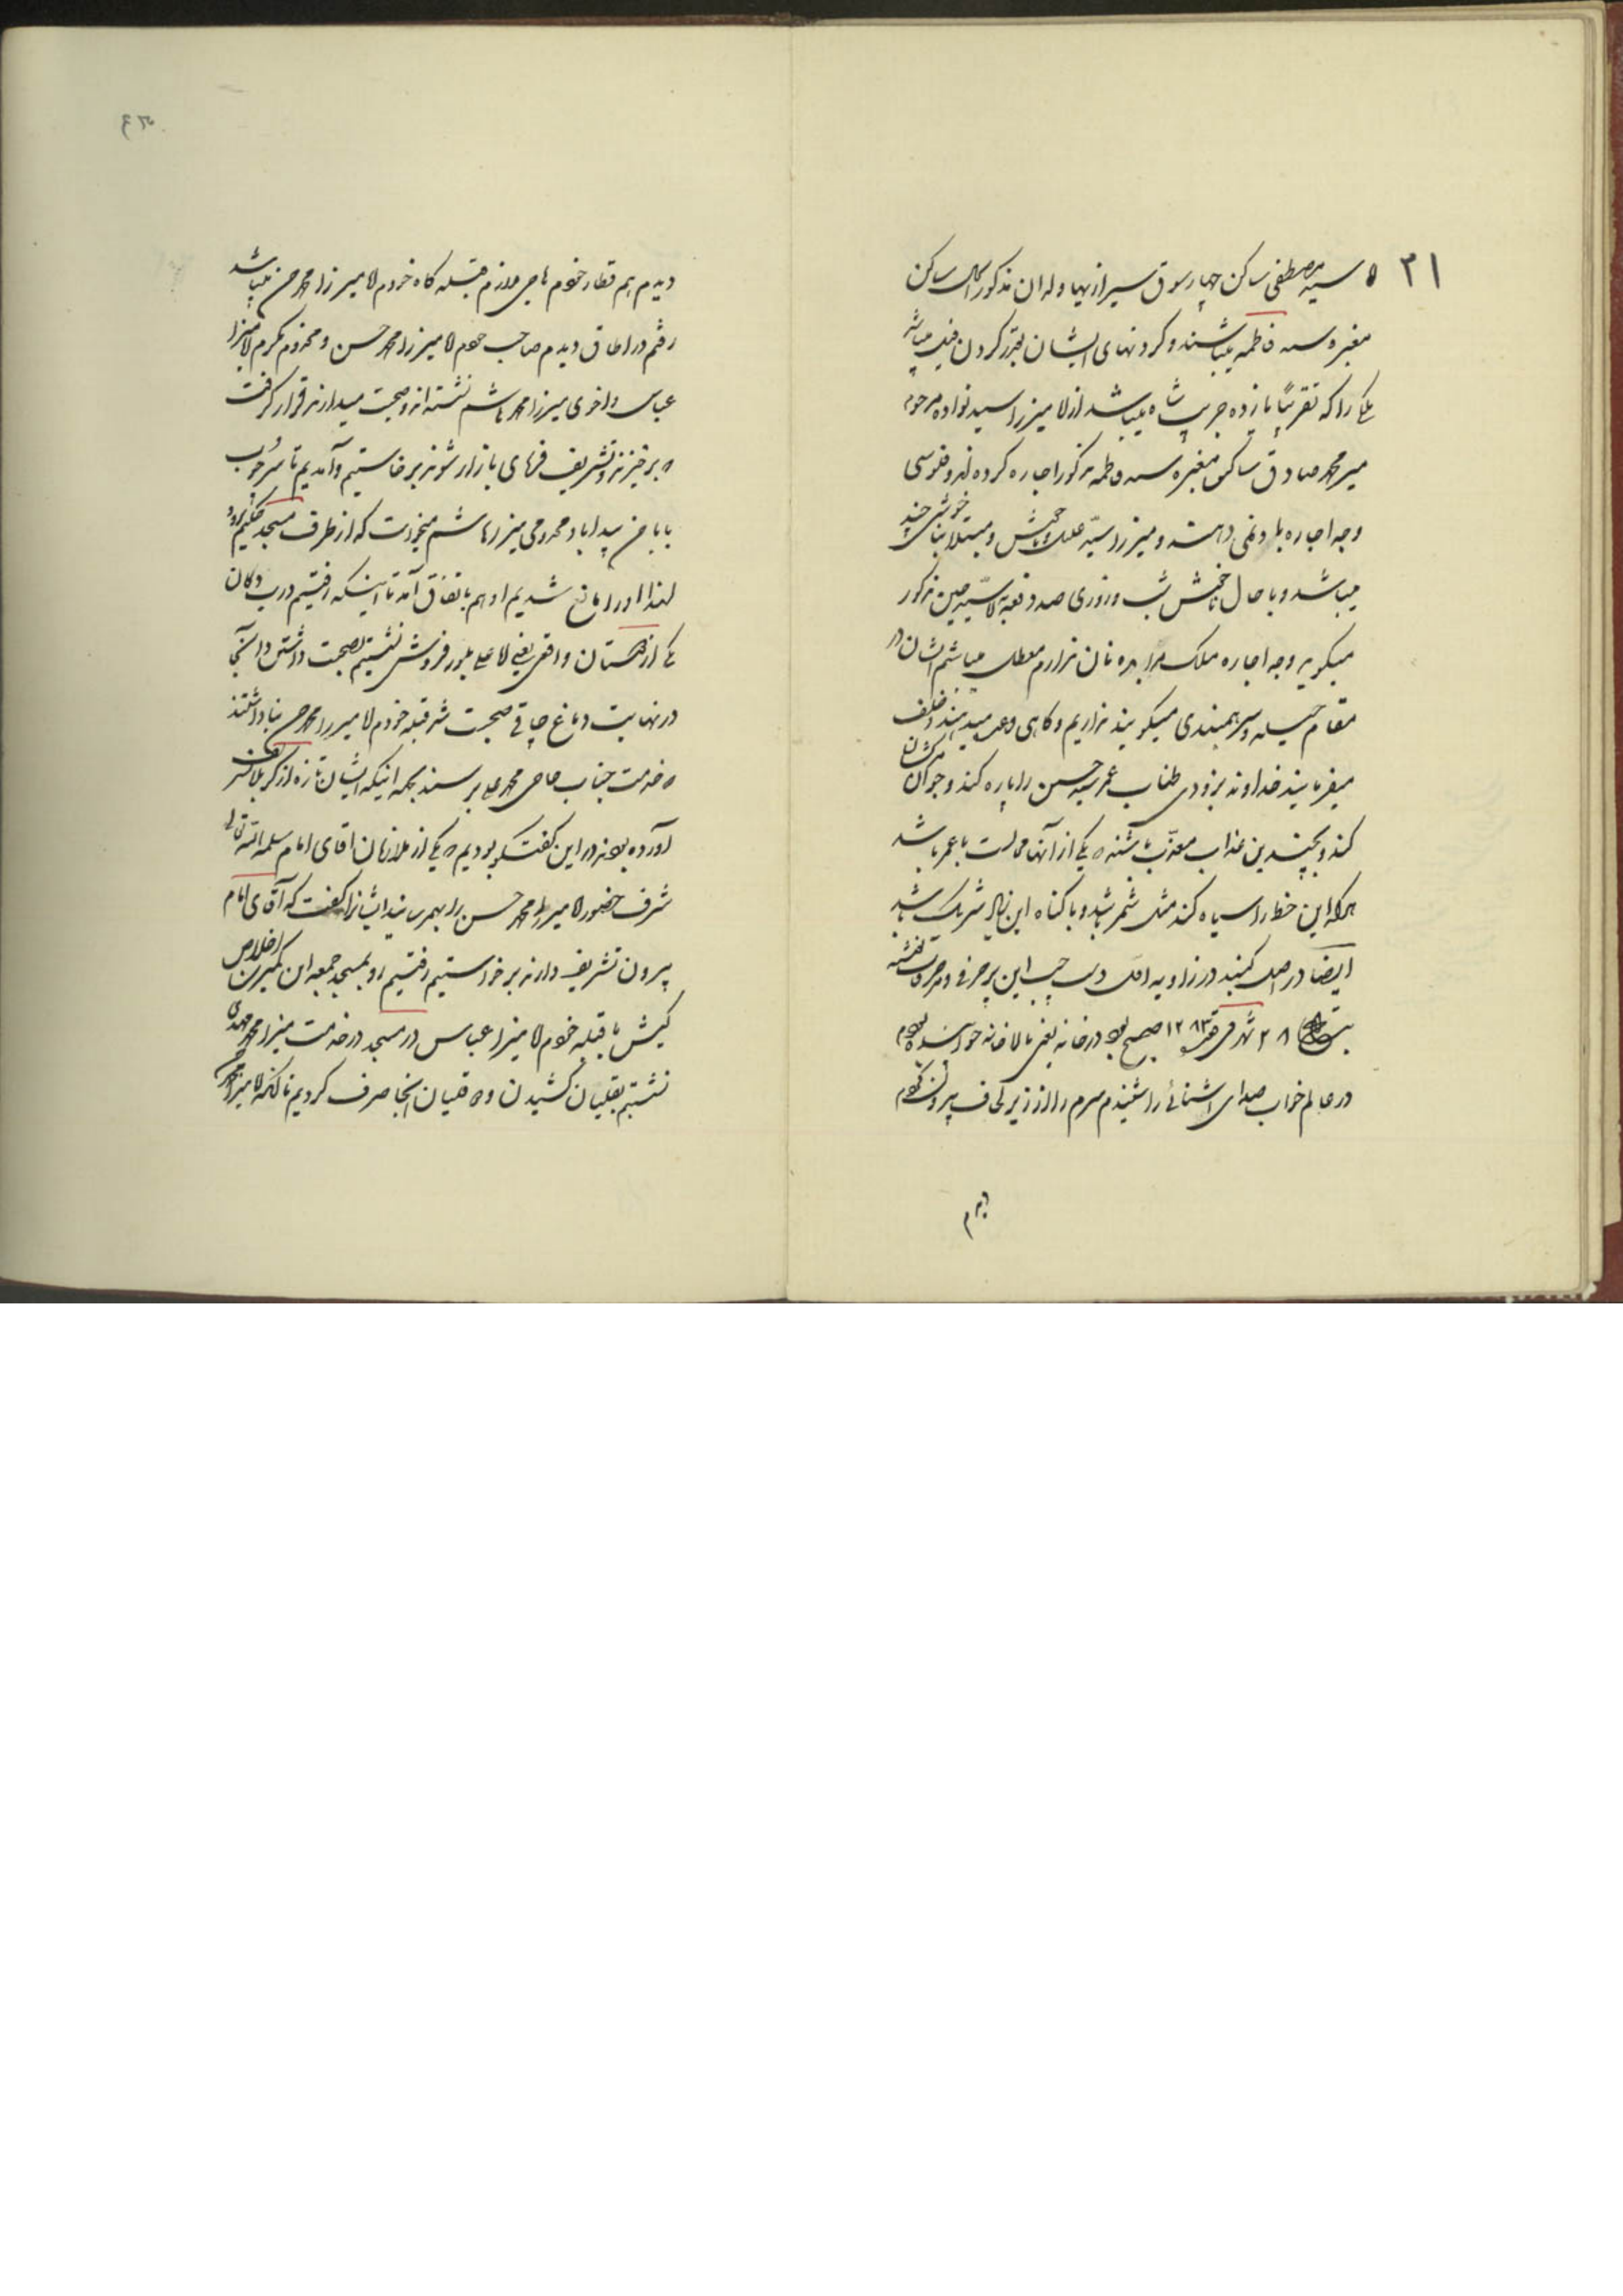 ۳۱
ه سید مصطفی ساکن چهارسوق شیرازیها و له ان مذکور الحال ساکن
مقبره سه فاطمه میباشند و کردنهای ایشان بقدر کردن فیل میباشد
ملکی را که تقریباً یازده جریب شاه میباشد از لا میرزا سید نواده مرحوم
میر محمد صادق ساکن مقبره سه فاطمه مذکور اجاره کرده اند و فلوسی
وجه اجاره باو نمی دهند و میرزا سید علیل و ناخوش و مبتلا بناخوشی چند
میباشد و با حال ناخوش شب و روزی صد دفعه لا سید حسین مذکور
میگوید وجه اجاره ملک مرا بده نان ندارم معطل میباشم ایشان در
مقام حیله و سرهمبندی میگویند نداریم و گاهی وعده میدهند و خلف
میفرمایند خداوند بزودی طناب عمر سید حسین را پاره کند و جوان مرگشان
کند و بچندین عذاب معذب باشند ه یکی از آنها ممات با عمر باشد
هر که این خط را سیاه کند مثل شمر باشد و با گناه این شریک باشد
ایضاً در اصل گنبد در زاویه اول دست چپ این پر حرفی و مزخرفات نوشته
بتاریخ ۲۸ شهر ۱۲۸۳ صبح بود در خانه یعنی بالاخانه خوابیده بودم
در عالم خواب صدای اشنائی را شنیدم سرم را از زیر لحاف بیرون نمودم
دیدم
دیدم هم قطار خودم حاجی ملازم قبله گاه خودم لا میرزا محمد حسن میباشد
رفتم در اطاق دیدم صاحب خودم لا میرزا محمد حسن و مخدوم مکرم لا میرزا
عباس و اخوی میرزا محمد هاشم نشسته اند و صحبت میدارند قرار گرفت
ه برخیزند و تشریف فرمای بازار شوند برخاستیم و آمدیم تا سر جوب
بابا حسن پیدا باد مخدومی میرزا هاشم میخواست که از طرف مسجد حکیم برود
لهذا او را مانع شدیم او هم باتفاق آمد تا اینکه رفتیم درب دکان
یکی از دوستان واقعی یعنی لا علی بلور فروش نشستیم بصحبت داشتن در آنجا
در نهایت دماغ چاقی صحبت شد قبله خودم لا میرزا محمد حسن بنا داشتند
ه خدمت جناب حاجی محمد علی برسند بجهة اینکه ایشان تازه از کربلا تشریف
آورده بودند در این گفتگو بودیم ه یکی از ملازمان اقای امام سلمه الله تعالی
شرف حضور لا میرزا محمد حسن را بهم رسانید ایشانرا گفت که آقای امام
بیرون تشریف دارند برخواستیم رفتیم رو بمسجد جمعه این کمترین اخلاص
کیش با قبله خودم لا میرزا عباس در مسجد در خدمت میرزا محمد مهدی
نشستیم بقلیان کشیدن و ه قلیان انجا صرف کردیم تا آنکه لا میرزا محمد